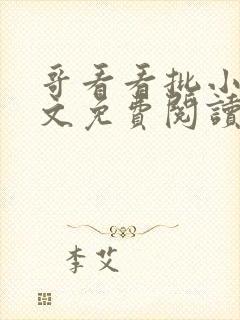 哥看看批小
文免費閱讀
李艾